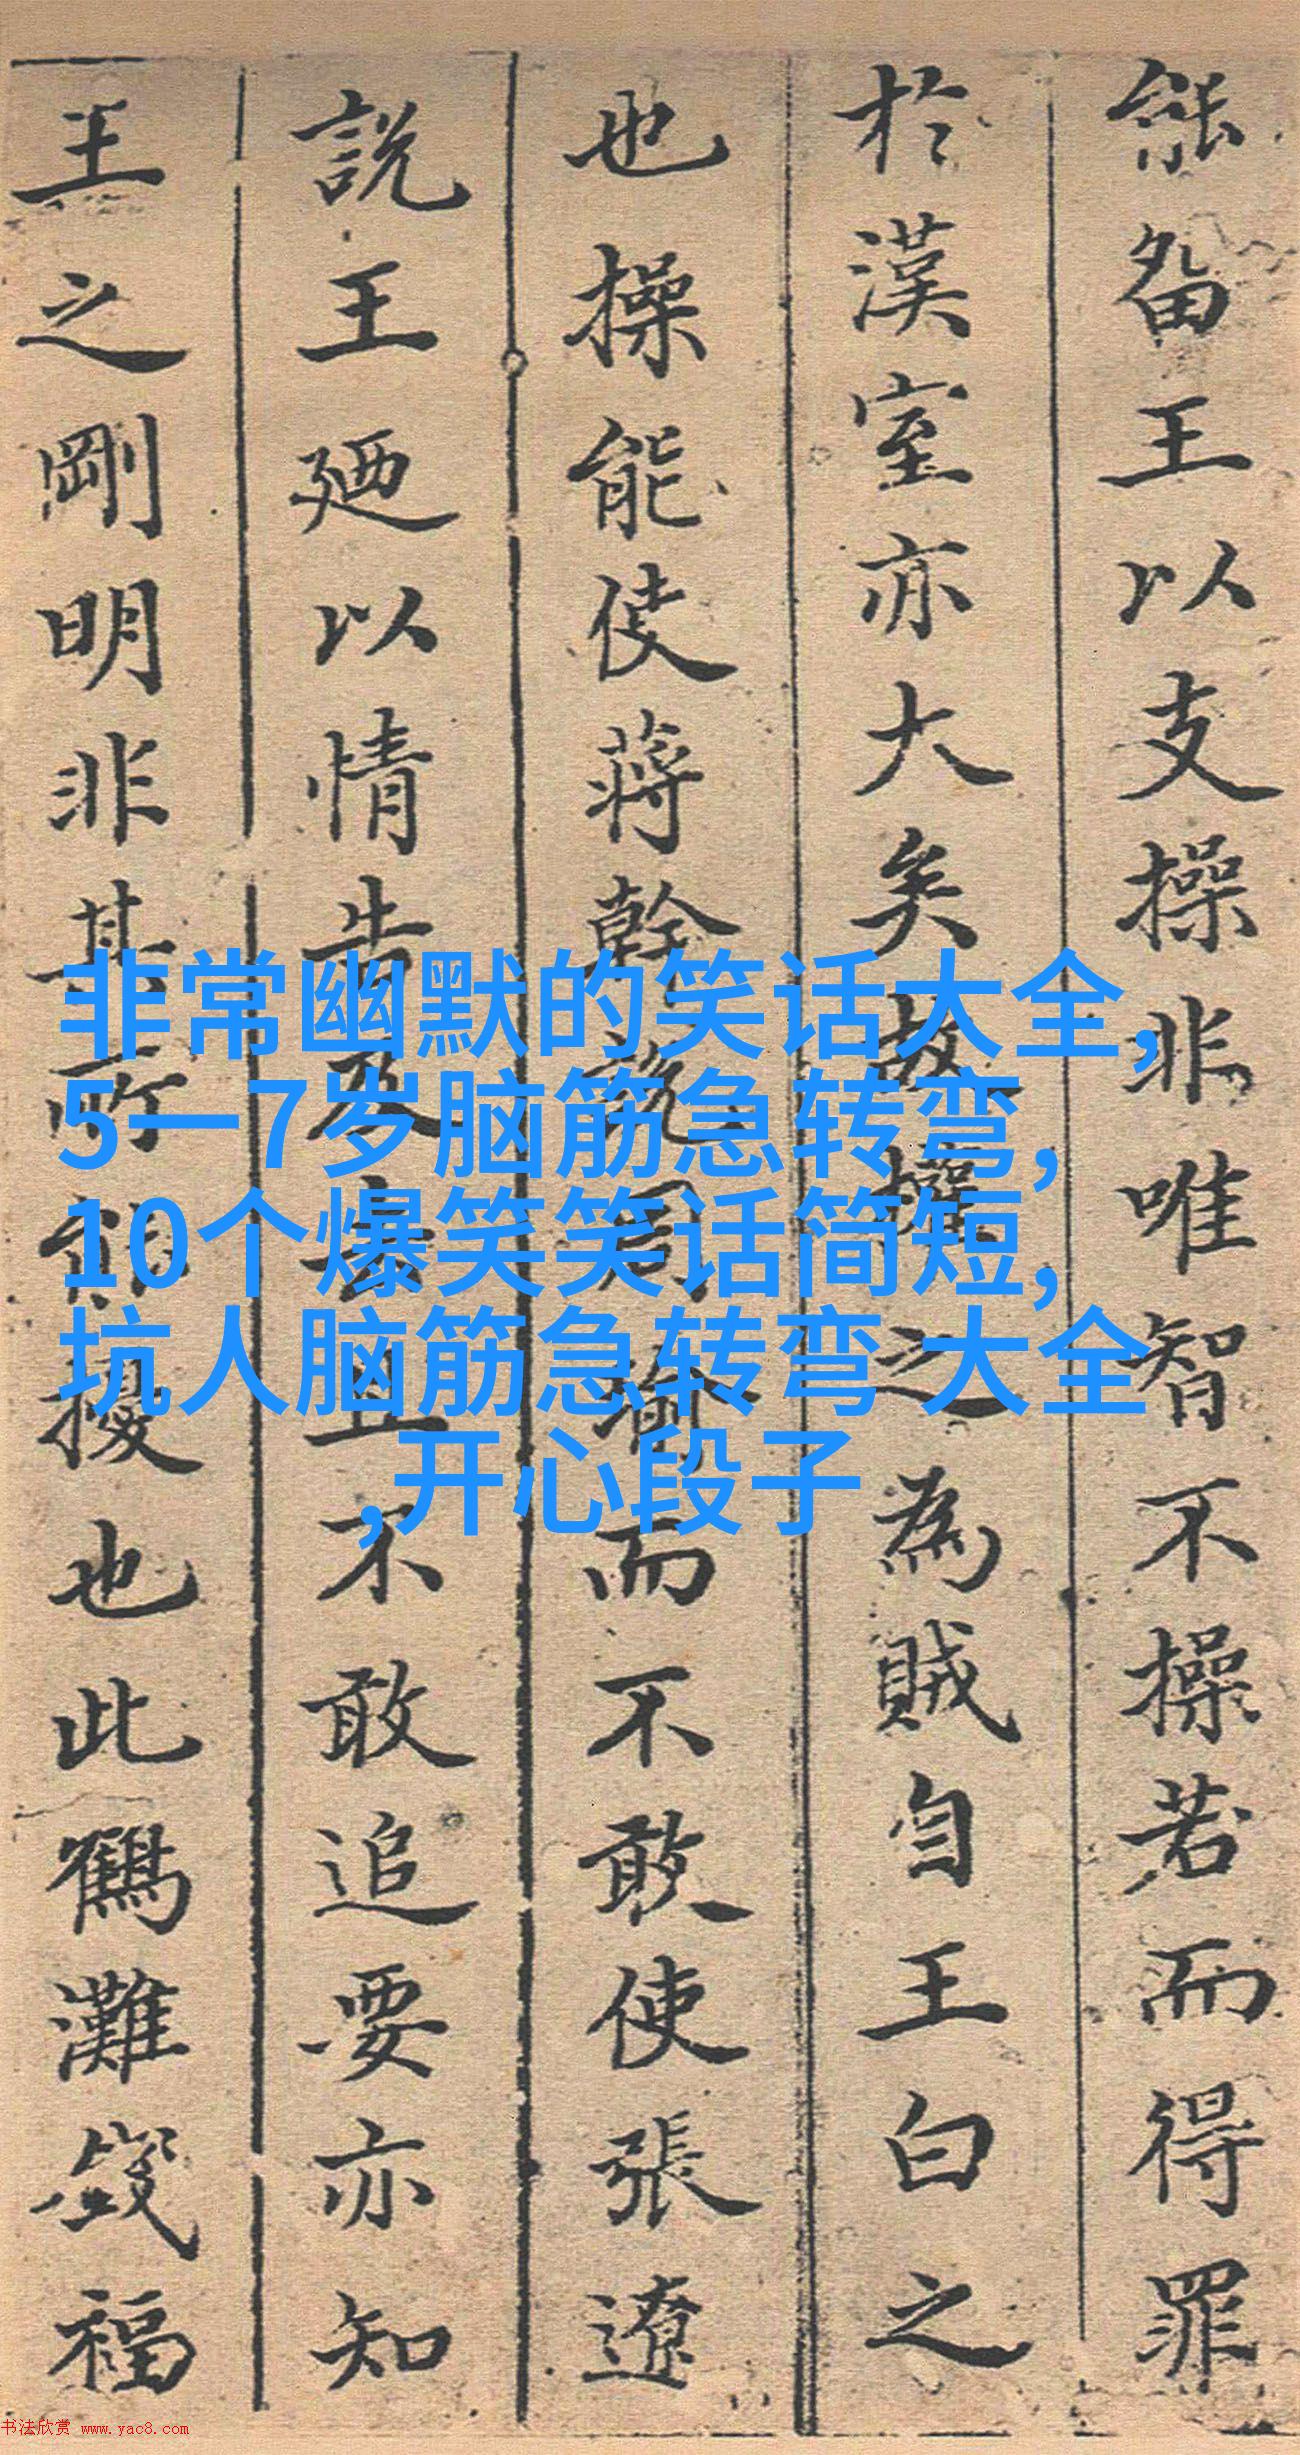 能留王以支操非唯智不操若而得罪
於漢室亦大矣故操之為賊自王白之
也操能使蔣幹說周瑜而不敢使張遼
說王廼以情告及去且不敢追要亦知
王之剛明非其所能擾也此鶴灘
福
非常幽默的笑话大全,
5一7岁脑筋急转弯,
10个爆笑笑话简短,
坑人脑筋急转弯 大全
,开心段子
书法欣赏 www.yac8.com